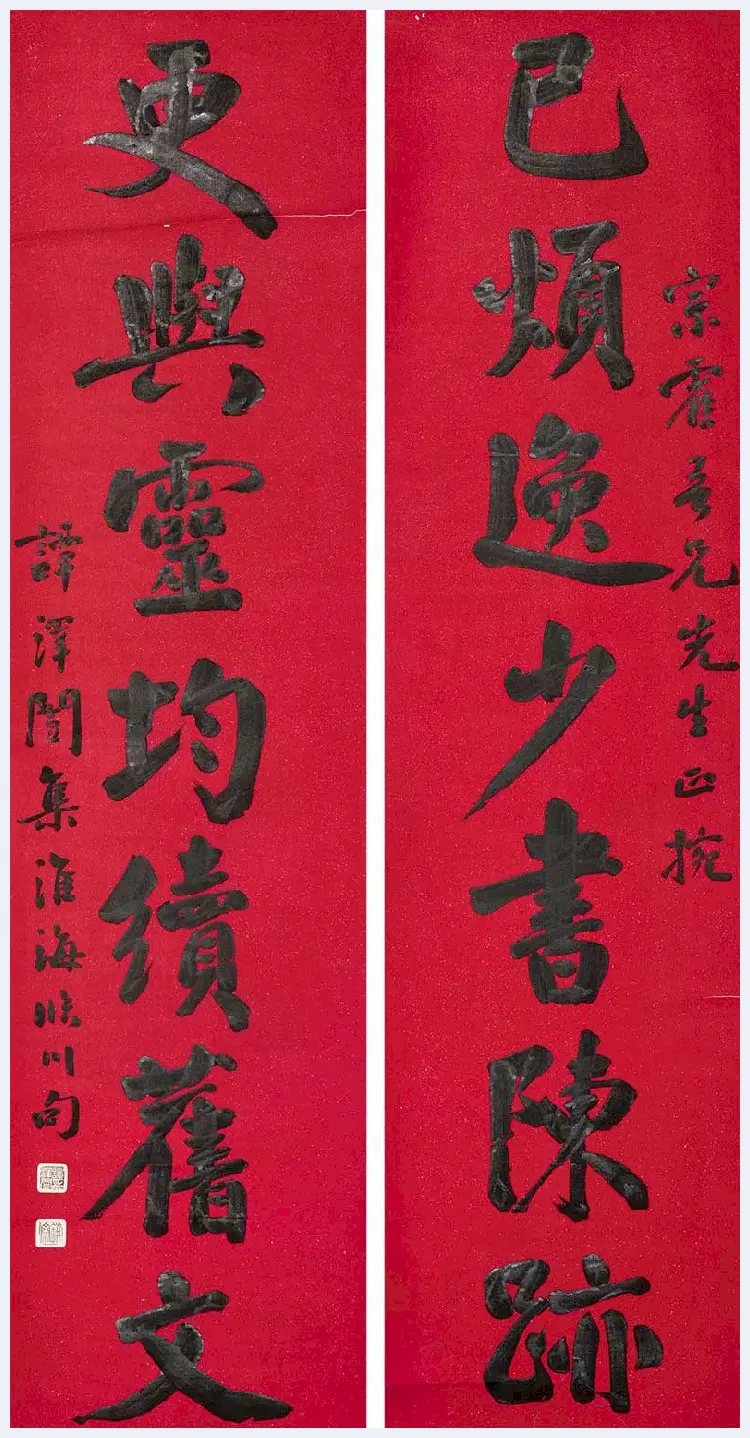 宗霍吾兄先生正捥
已煩逸少書陳跡
更與靈均續舊文
譚澤闓集淮海臨川句